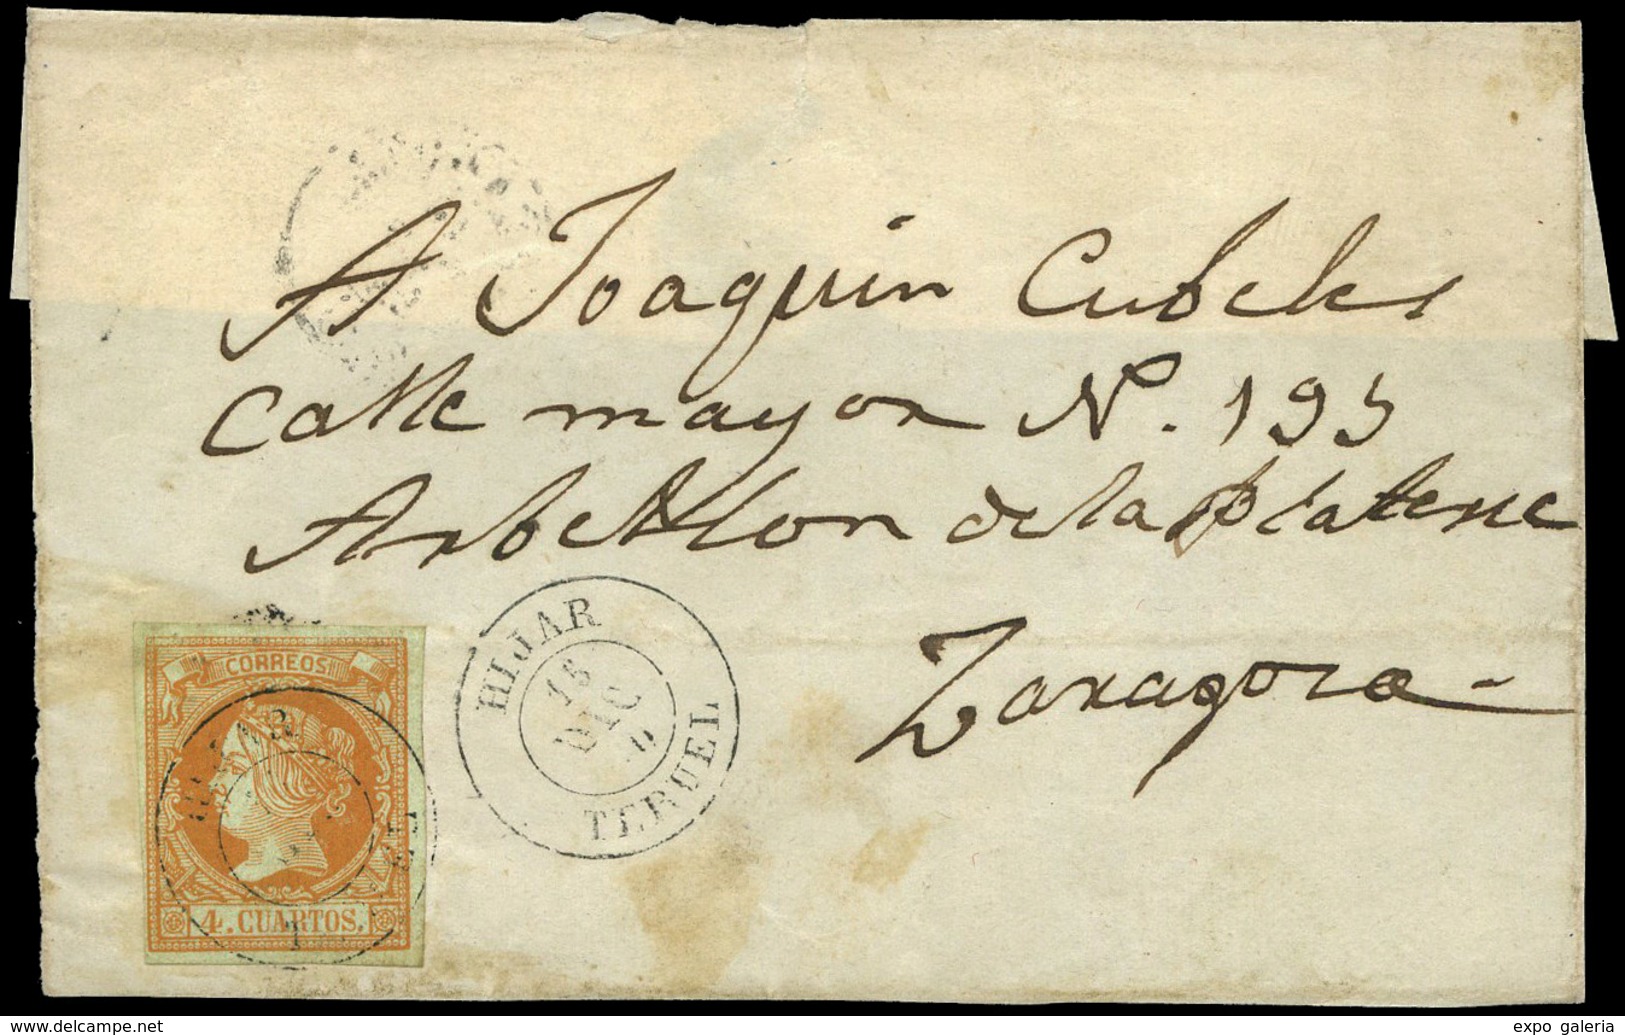 A Joaquin Cubeles
Calle mayor N. 195
Arbellon de la
Zaragoza
HIJAR
15
DIC
TERUEL
CORREOS
HIJAR
4. CUARTOS.
www.delcampe.net
expo galeria